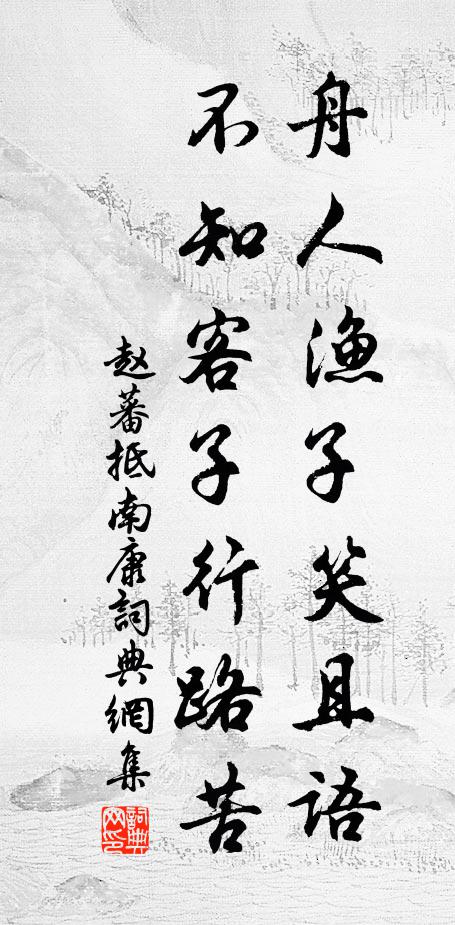 舟人漁子笑且語
不知客子行路苦
赵蕃抵南康詞典網集
詞典网印